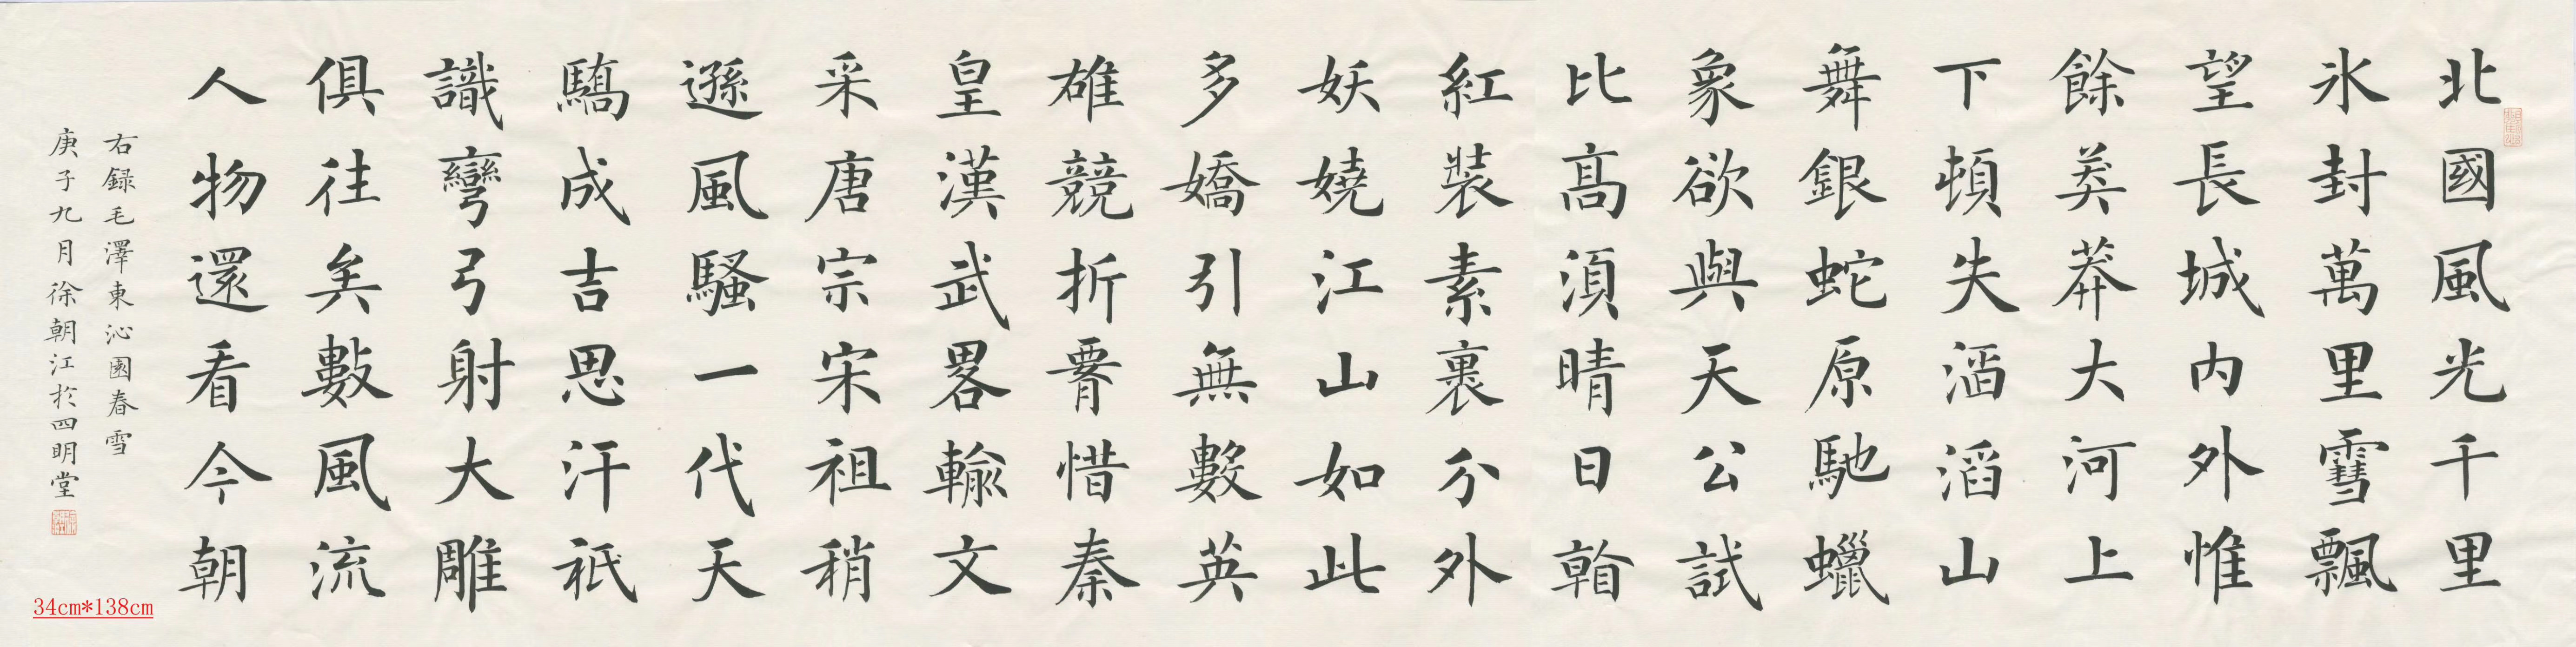 北國風光千里
氷封萬里雪飄
望長城内外惟
餘莽莽大河上
下頓失滔滔山
舞銀蛇原馳蠟
象欲與天公試
比髙湏晴日看
紅裝素裹分外
妖嬈江山如此
多嬌引無數英
雄競折腰惜秦
皇漢武畧輸文
采唐宗宋祖稍
遜風騷一代天
驕成吉思汗祇
識彎弓射大雕
俱往矣數風流
人物還看今朝
右録毛澤東沁園春雪
庚子九月徐朝江於四明堂
34cm*138cm